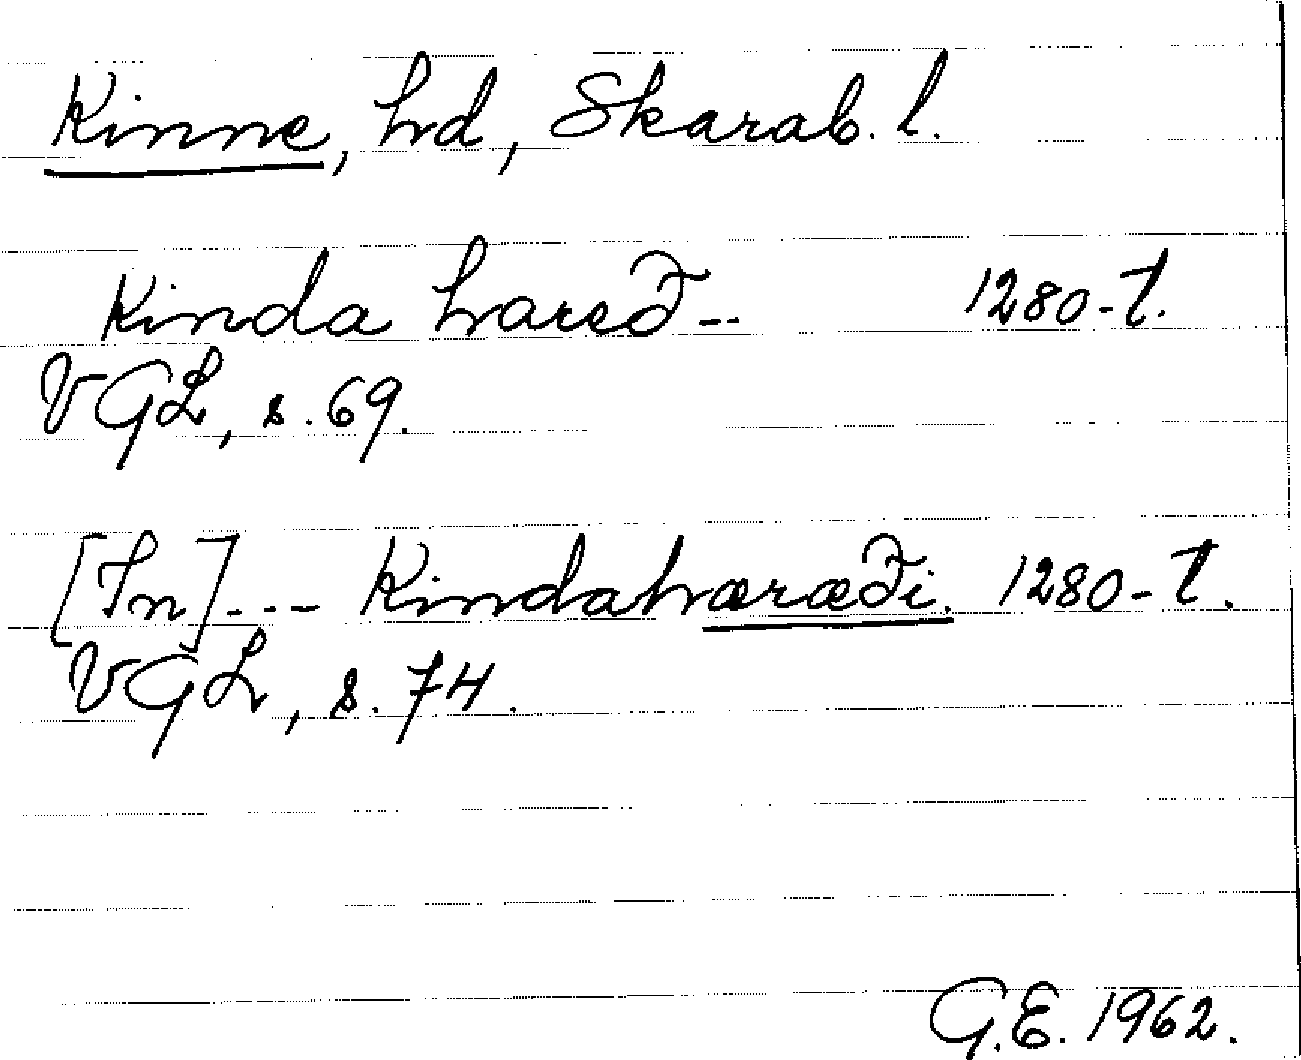 Kinne, hd, Skarab. l.
Kinda hareð-- 1280-t.
VGL, s. 69.
[In]--- Kindahæræði. 1280-t.
VGL, s. 74.
G.E. 1962.